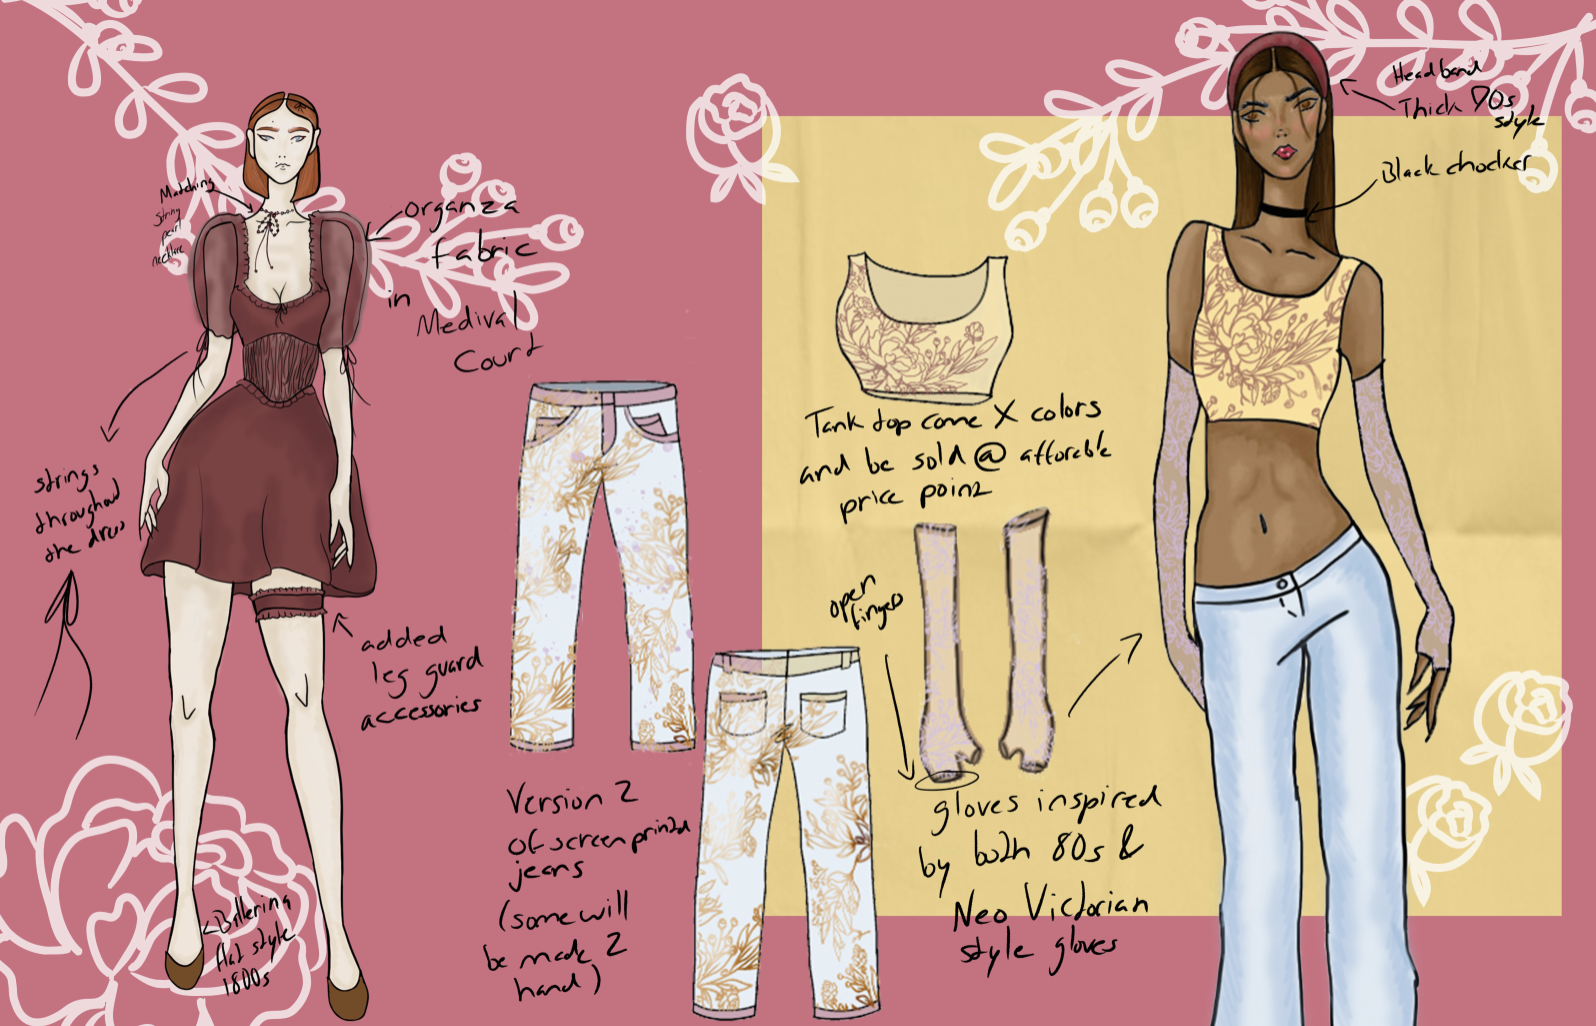 Matching
string
pearl
necklace
organza
fabric
in
Medival
Court
strings
throughout
the dress
added
leg guard
accessories
<Ballerina
flat style
1800s
Version 2
of screen printed
jeans
(some will
be made 2
hand)
Tank top come X colors
and be sold @ afforable
price point
open
fingers
gloves inspired
by both 80s &
Neo Victorian
style gloves
Headband
Thick 90s
style
Black chocker